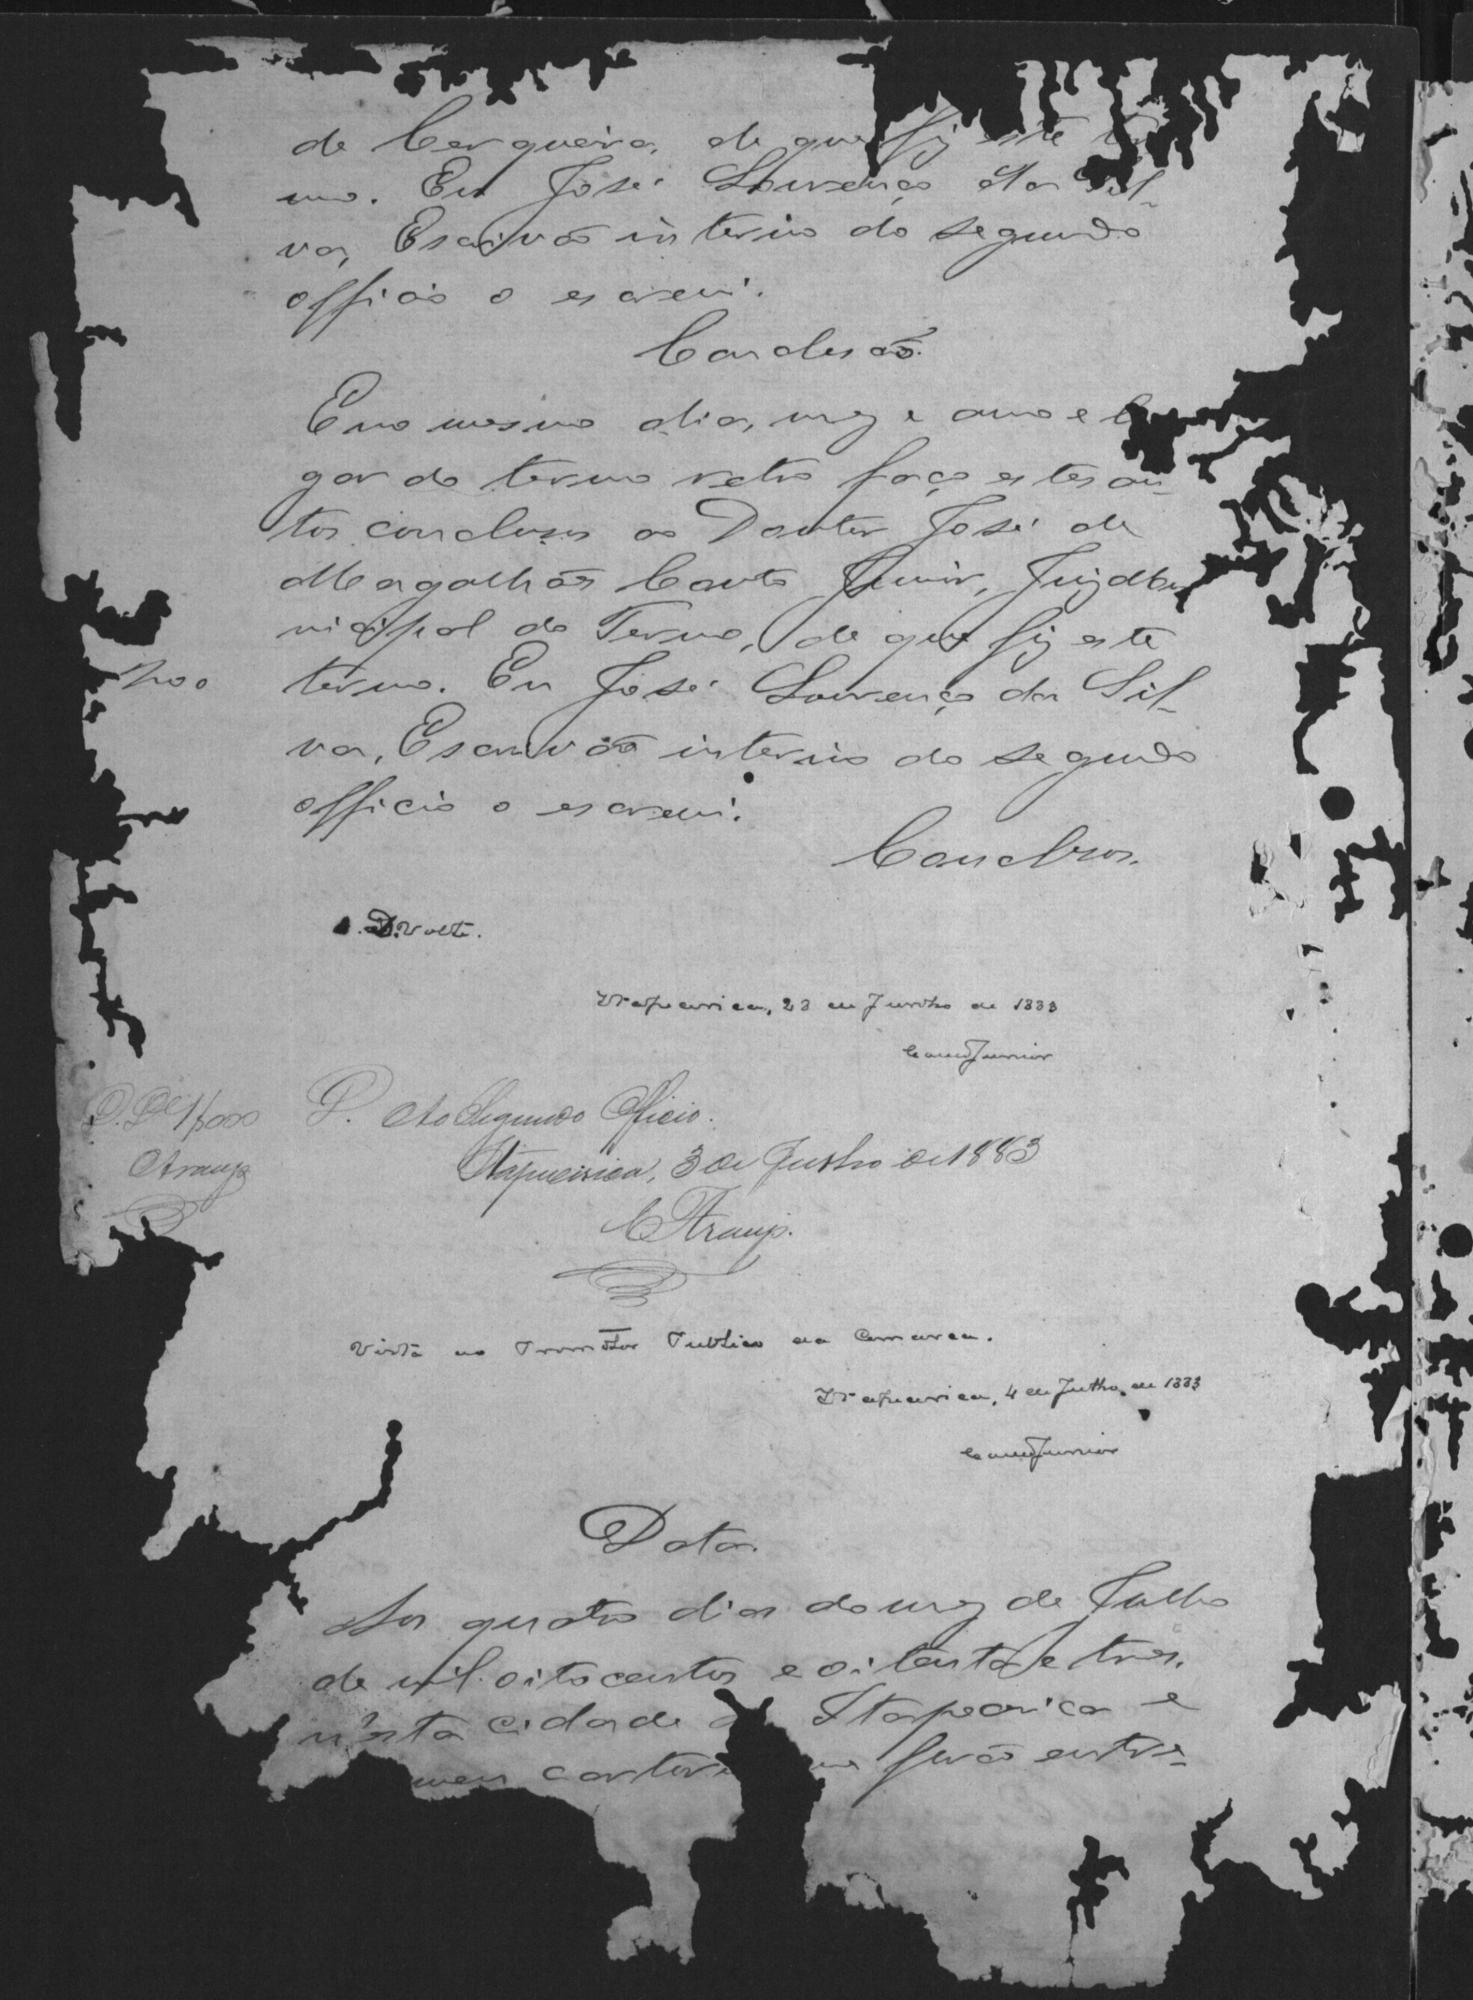 de Cerqueira, de que fiz este ter
mo. Eu José Lourenço da Sil-
va, Escrivão interino do segundo
officio o escrevi.
Conclusão.
E no mesmo dia, mez e anno e lu
gar do termo retro faço estes au-
tos conclusos ao Doutor José de
Magalhães Couto Junior, Juiz Mu
nicipal do Termo, de que fiz este
termo. Eu José Lourenço da Sil-
va, Escrivão interino do segundo
officio o escrevi.
Conclusos.
D. Volte.
Itapecerica, 23 de Junho de 1883
Couto Junior
P. Ao Segundo Officio.
Itapecerica, 3 de Julho de 1883
Araujo
Araujo.
Vista ao Promotor Publico da Comarca.
Itapecerica, 4 de Julho de 1883
Couto Junior
Data.
Aos quatro dias do mez de Julho
de mil oitocentos e oitenta e tres,
n'esta cidade de Itapecerica e
meu cartorio me forão entre-